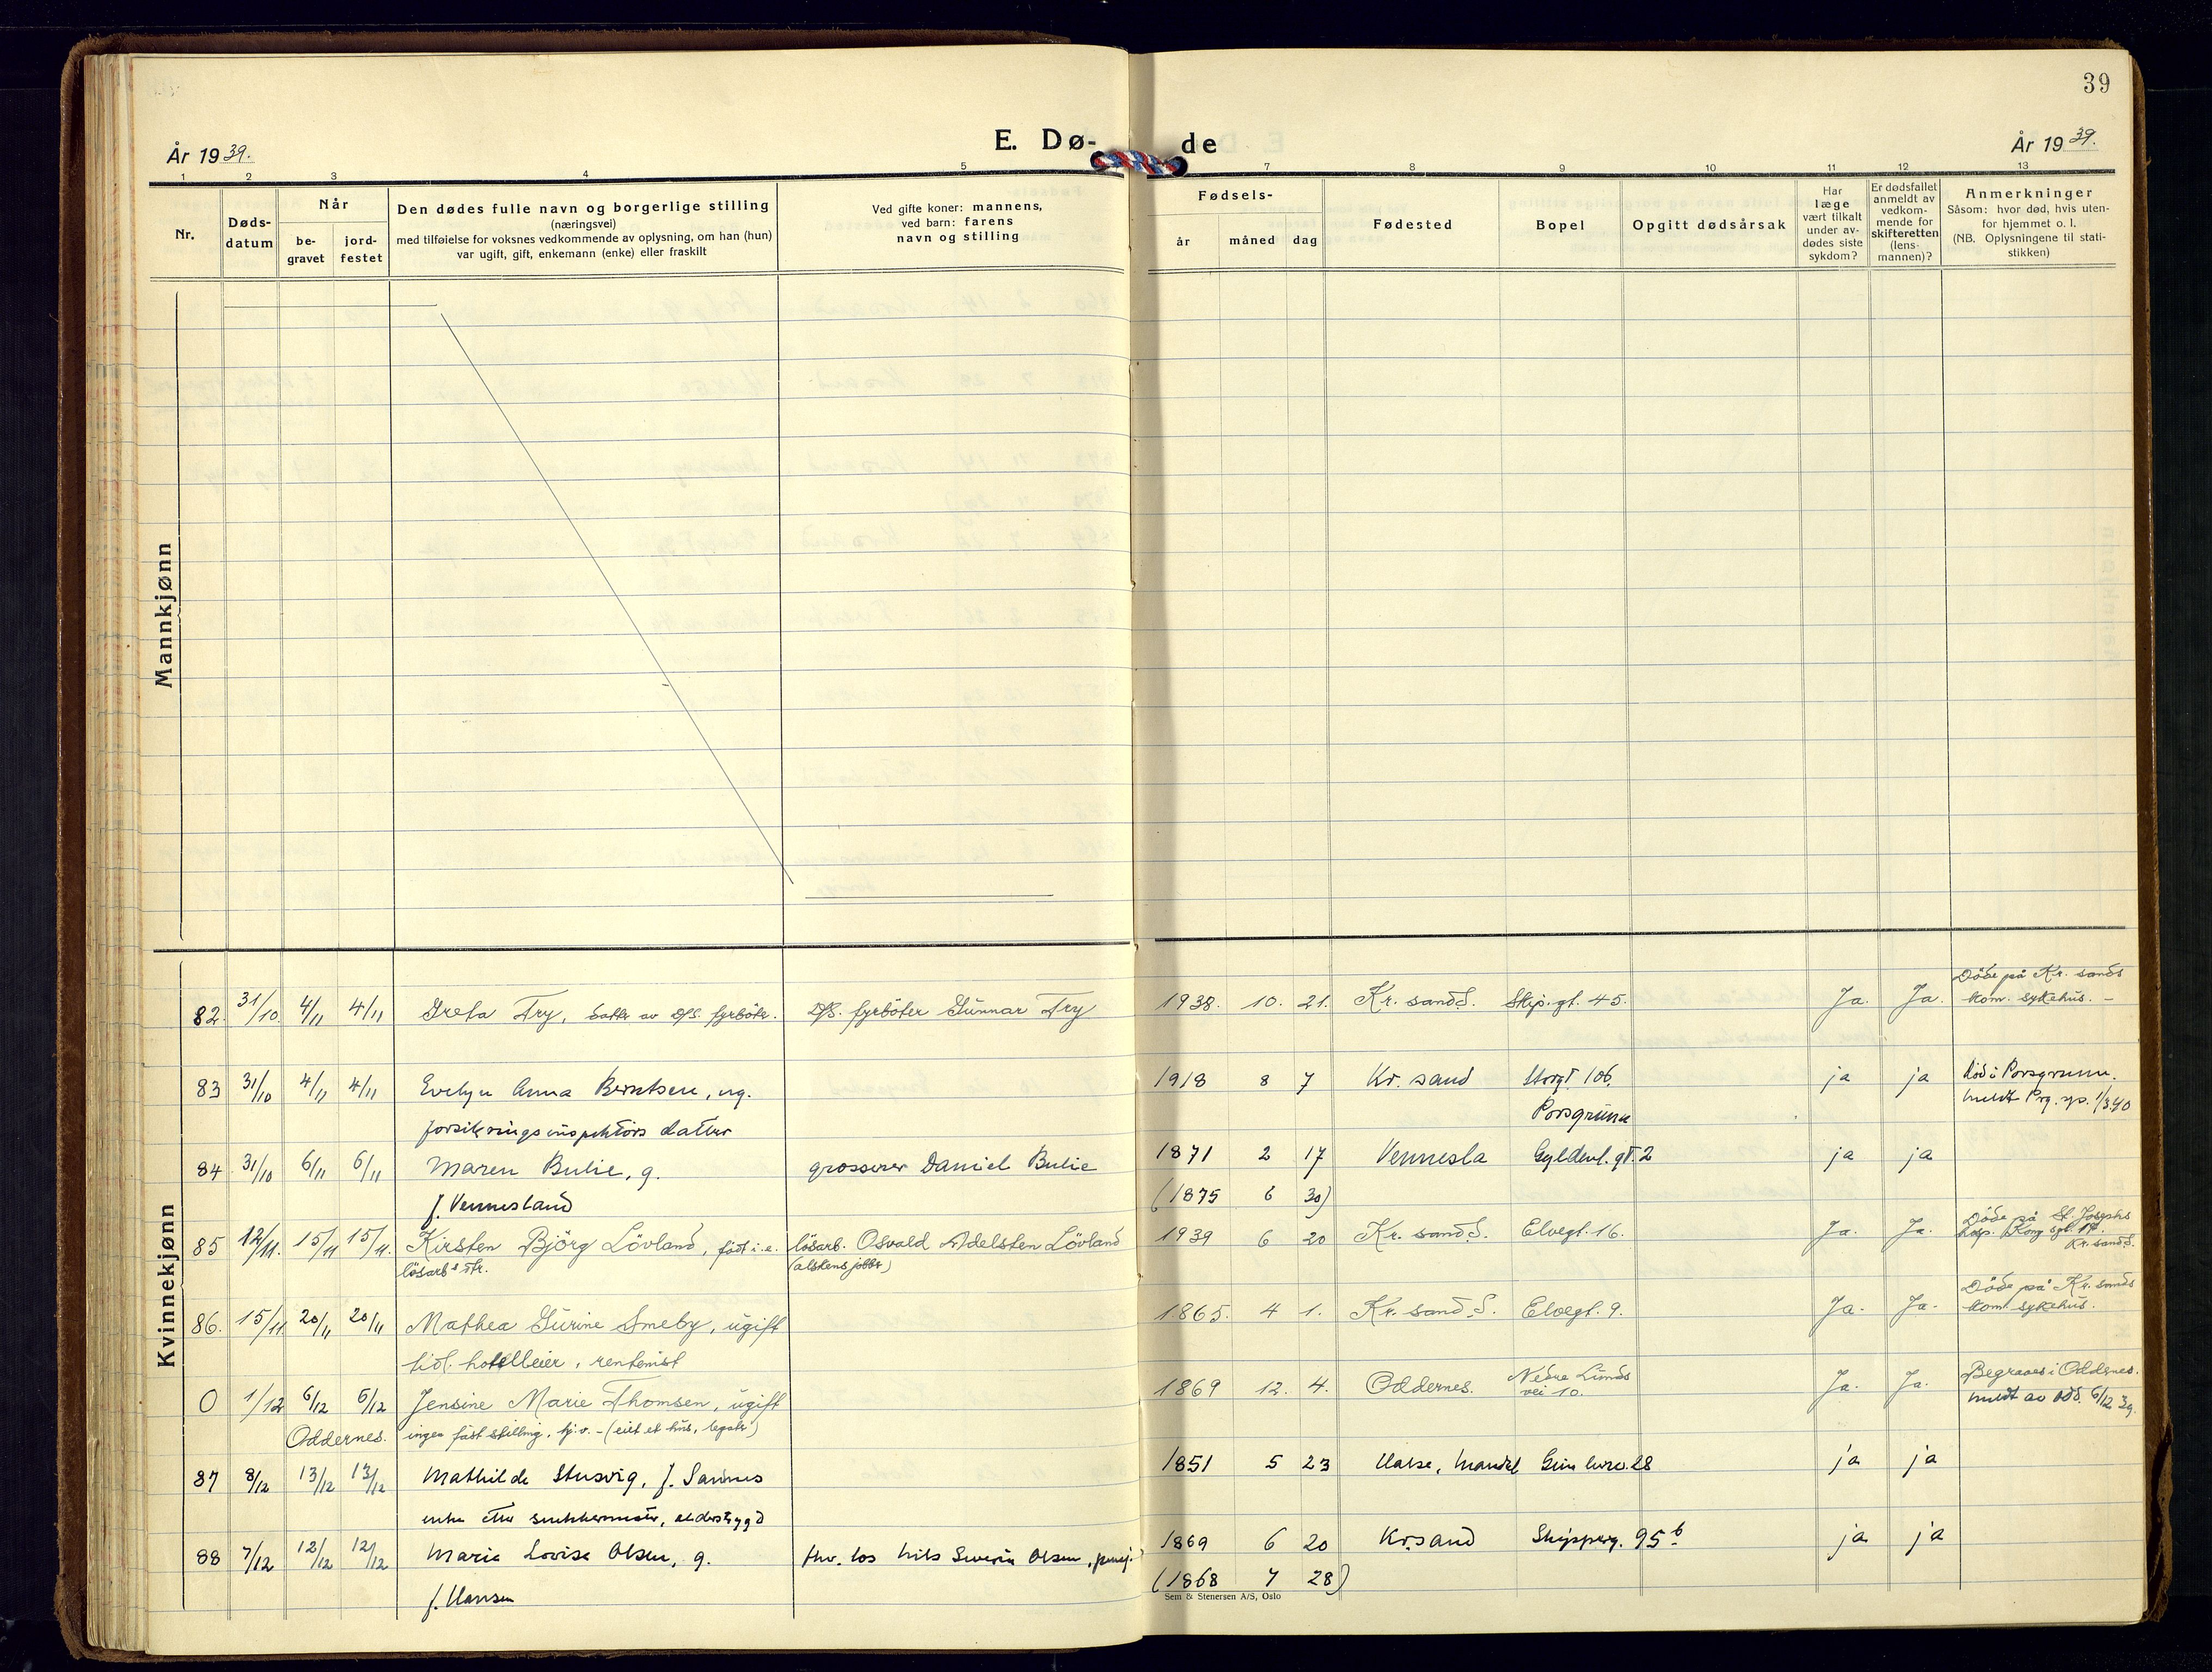 39
E. Dø- de
År 1939.
År 1939.
1 2 3 4 5 7 8 9 10 11 12 13
Nr.
Døds-
datum
Når
be-
gravet
jord-
festet
Den dødes fulle navn og borgerlige stilling
(næringsvei)
med tilføielse for voksnes vedkommende av oplysning, om han (hun)
var ugift, gift, enkemann (enke) eller fraskilt
Ved gifte koner: mannens,
ved barn: farens
navn og stilling
Fødsels-
år måned dag
Fødested
Bopel
Opgitt dødsårsak
Har
læge
vært tilkalt
under av-
dødes siste
sykdom?
Er dødsfallet
anmeldt av
vedkom-
mende for
skifteretten
(lens-
mannen)?
Anmerkninger
Såsom: hvor død, hvis uten-
for hjemmet o. l,
(NB. Oplysningene til stati-
stikken)
Mannkjønn
Kvinnekjønn
82. 31/10 4/11 4/11 Greta Try, datter av D/S. fyrböter. D/S. fyrböter Gunnar Try 1938. 10. 21. Kr. sand S. Skip.gt. 45. Ja. Ja. Döde på Kr. sands
kom. sykehus. –
83 31/10 4/11 4/11 Evelyn Anna Berntsen, ug. 1918 8 7 Kr. sand Storgt 106. ja ja Död i Porsgrunn.
forsikringsinspektörs datter Porsgrunn meldt Prg. sp. 1/3 40
84 31/10 6/11 6/11 Maren Bulie, g. grosserer Daniel Bulie 1871 2 17 Vennesla Gyldenl. gt. 2 ja ja
f. Vennesland (1875 6 30)
85 12/11. 15/11 15/11. Kirsten Björg Lövland, födt i. e. lösarb. Osvald Adelsten Lövland 1939 6 20 Kr. sand S. Elvegt. 16. Ja. Ja. Döde på St. Josephs
hosp. Kongsgt. 14
Kr. sand S.
lösarb.s dtr. (alskens jobber)
86. 15/11 20/11 20/11 Mathea Gurine Smeby, ugift 1865. 4 1. Kr. sand S. Elvegt. 9. Ja. Ja. Döde på Kr. sands
kom. sykehus.
tidl. hotelleier, rentenist
0 1/12 6/12 6/12 Jensine Marie Thomsen, ugift 1869 12. 4. Oddernes. Nedre Lunds
vei 10. Ja. Ja. Begraves i Oddernes.
meldt av Odd. 6/12 39.
Oddernes. ingen fast stilling, hj.v. – (eiet et hus, legater)
87 8/12 13/12 13/12 Mathilde Stusvig, f. Sannes 1851 5 23 Halse, Mandal 28 ja ja
enke etter snekkermester, alderstrygd
88 7/12 12/12 12/12 Marie Lovise Olsen, g. fhv. los Nils Severin Olsen, pensj. 1869 6 20 Kr.sand Skipperg. 95 b ja ja
f. Hansen (1868 7 28)
Sem & Stenersen A/S, Oslo